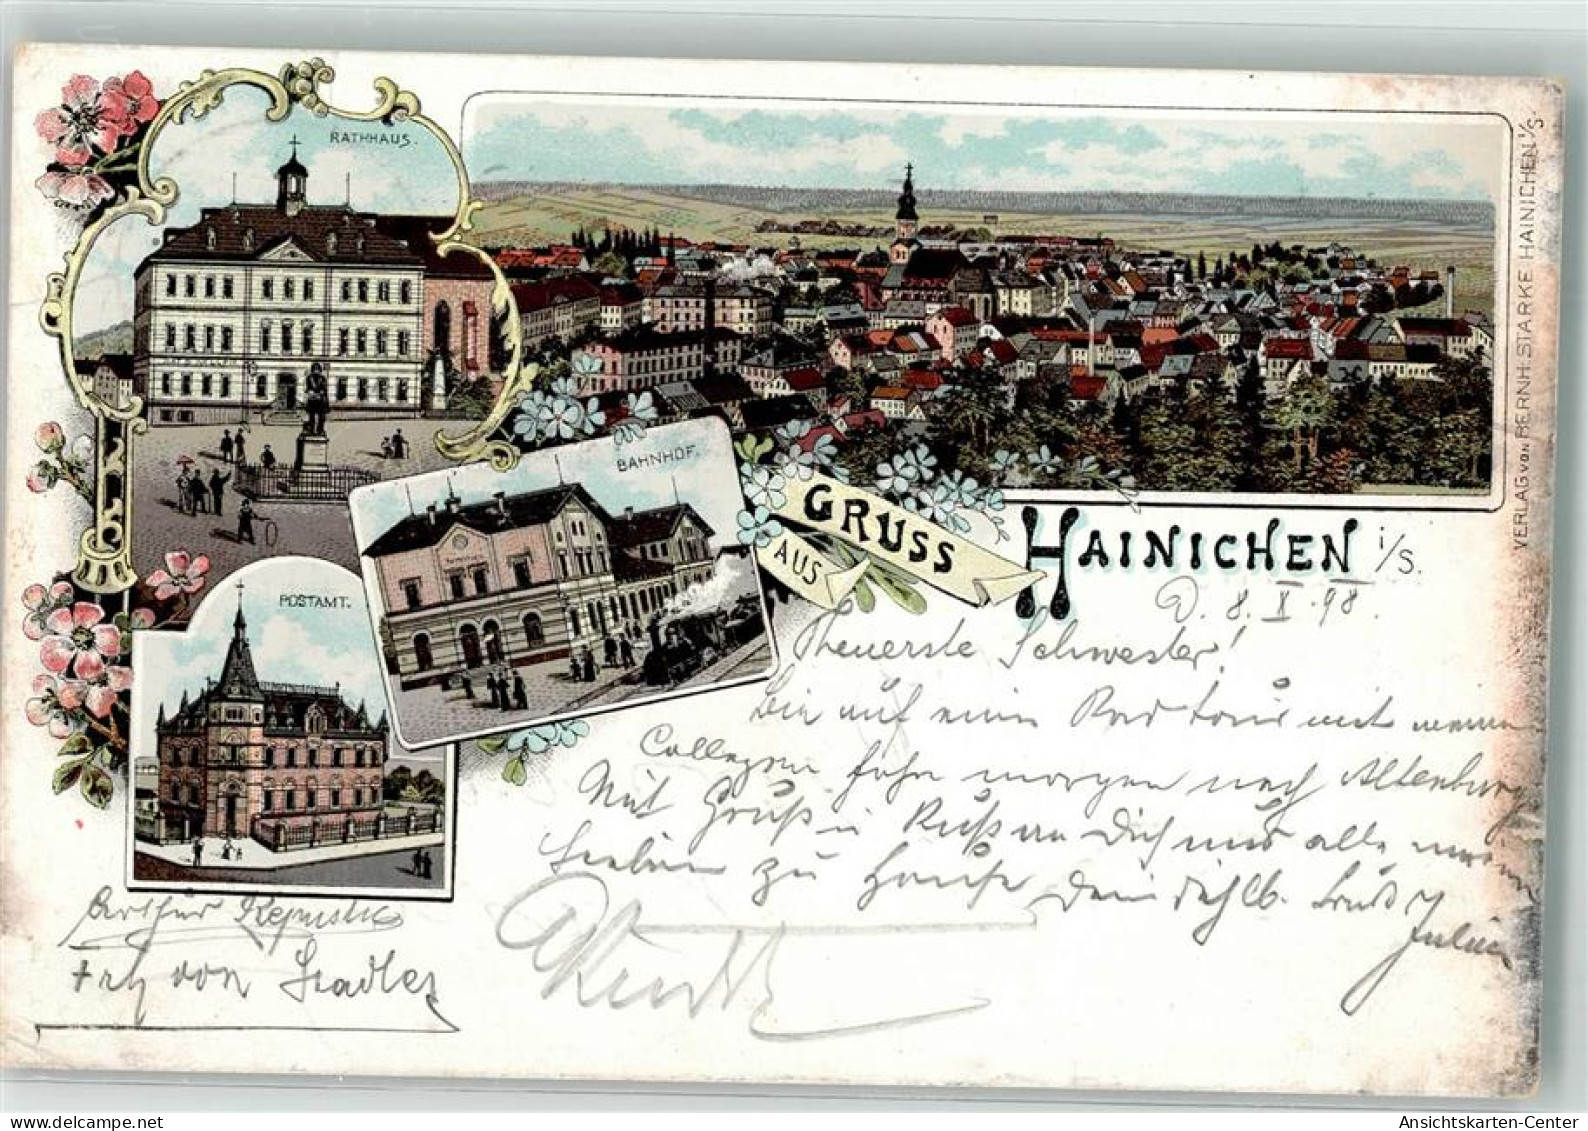 RATHHAUS.
BAHNHOF.
POSTAMT.
GRUSS
AUS
HAINICHEN i/S.
VERLAG von BERNH. STARKE HAINICHEN i/S.
D. 8. X. 98.
Theuerste Schwester!
Bin auf einer Rad tour mit meinen
Collegen fahre morgen nach Altenburg
Mit Gruß u Kuß an Dich und alle meine
Lieben zu Hause Dein Bruder
Arthur
von Stadler
delcampe.net
bartko-reher
Ansichtskarten-Center